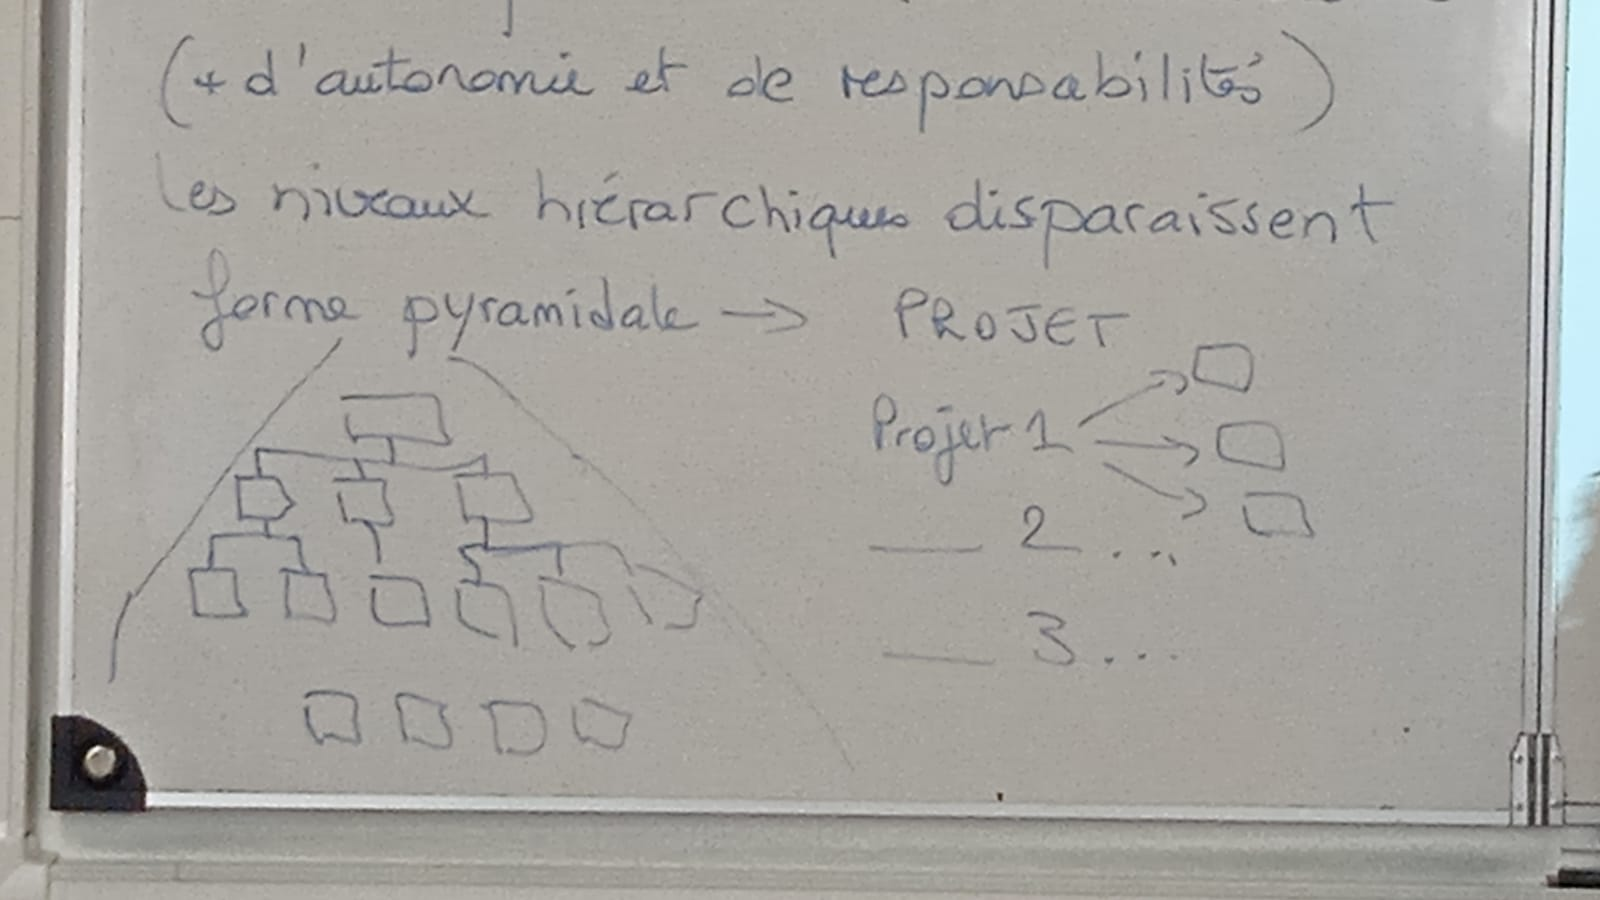 (+ d'autonomie et de responsabilités)
Les niveaux hiérarchiques disparaissent
forme pyramidale → PROJET
Projet 1
___ 2 ...
___ 3 ...